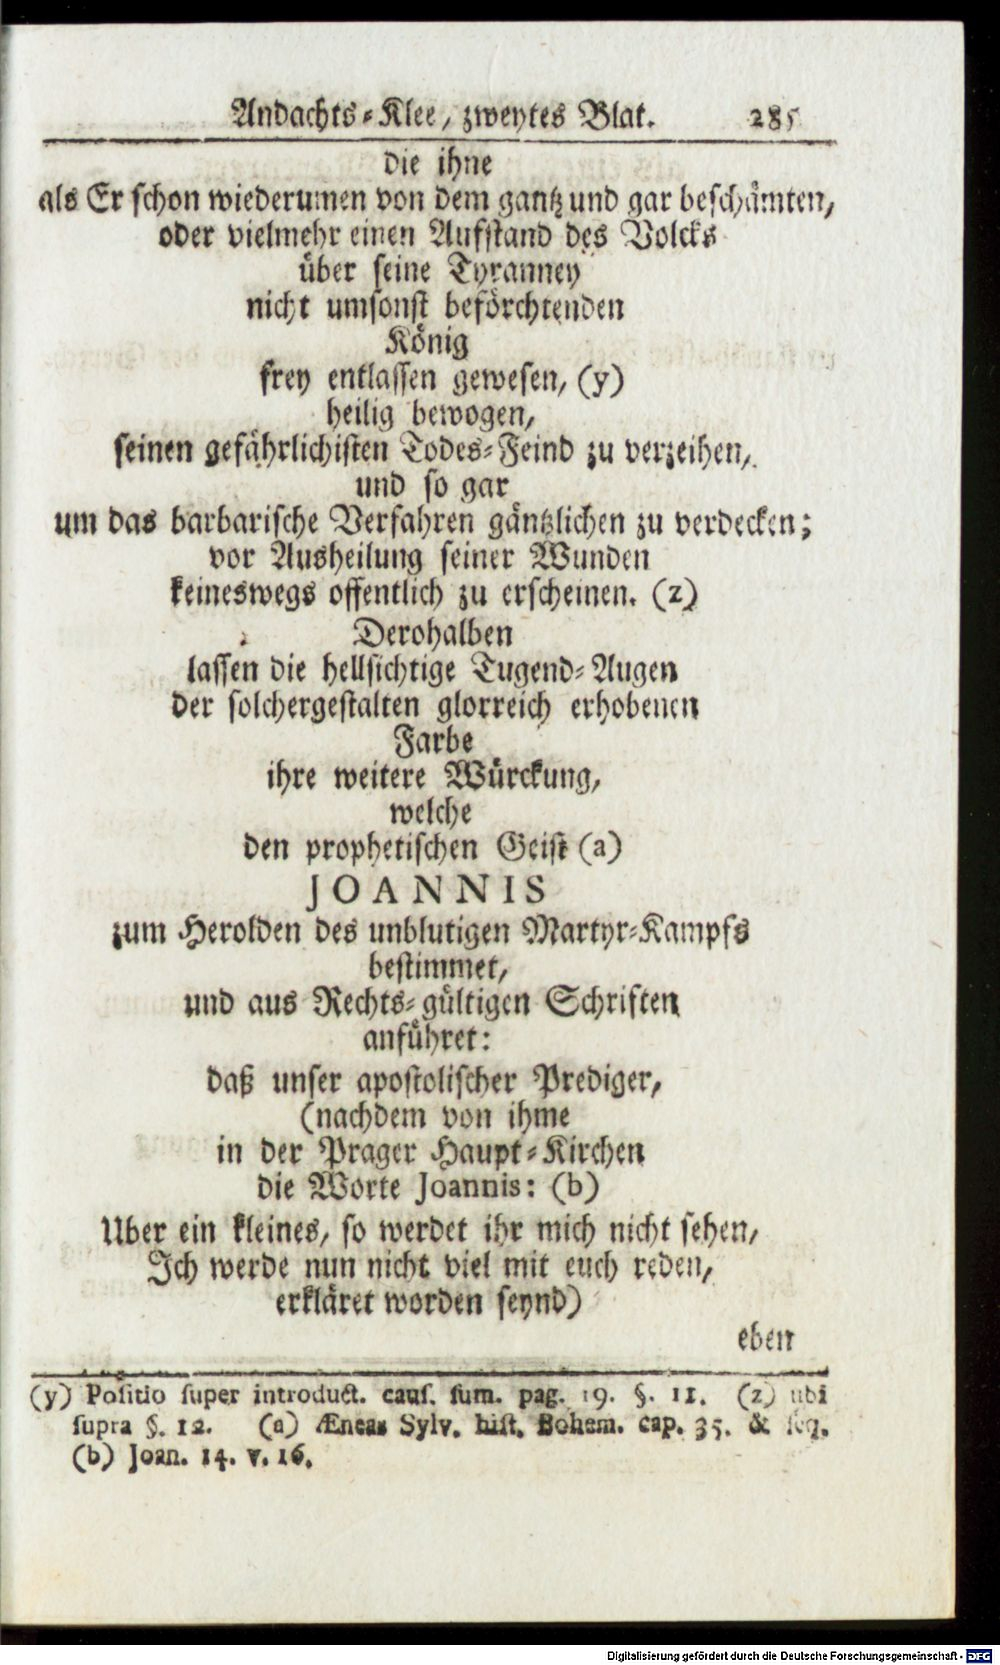 Andachts-Klee, zweytes Blat. 285
die ihne
als Er schon wiederumen von dem gantz und gar beschämten,
oder vielmehr einen Aufstand des Volcks
über seine Tyranney
nicht umsonst beförchtenden
König
frey entlassen gewesen, (y)
heilig bewogen,
seinen gefährlichisten Todes-Feind zu verzeihen,
und so gar
um das barbarische Verfahren gäntzlichen zu verdecken;
vor Ausheilung seiner Wunden
keineswegs offentlich zu erscheinen. (z)
Derohalben
lassen die hellsichtige Tugend-Augen
der solchergestalten glorreich erhobenen
Farbe
ihre weitere Würckung,
welche
den prophetischen Geist (a)
JOANNIS
zum Herolden des unblutigen Martyr-Kampfs
bestimmet,
und aus Rechts-gültigen Schriften
anführet:
daß unser apostolischer Prediger,
(nachdem von ihme
in der Prager Haupt-Kirchen
die Worte Joannis: (b)
Uber ein kleines, so werdet ihr mich nicht sehen,
Ich werde nun nicht viel mit euch reden,
erkläret worden seynd)
eben
(y) Positio super introduct. caus. sum. pag. 19. §. 11. (z) ubi
supra §. 12. (a) Æneas Sylv. hist. Bohem. cap. 35. & seq.
(b) Joan. 14. v. 16.
Digitalisierung gefördert durch die Deutsche Forschungsgemeinschaft - DFG